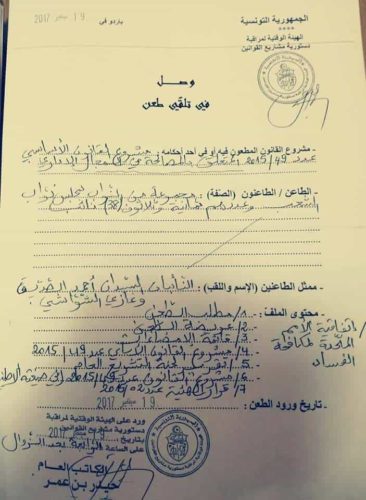 الجمهورية التونسية
****
الهيئة الوقتية لمراقبة
دستورية مشاريع القوانين
باردو في 19 سبتمبر 2017
وصل
في تلقي طعن
- مشروع القانون المطعون فيه أو في أحد أحكامه: مشروع القانون الأساسي
عدد 49/2015 المتعلق بالمصالحة في المجال الإداري
- الطاعن / الطاعنون (الصفة): مجموعة من نواب مجلس نواب
الشعب وعددهم ثمانية وثلاثون (38) نائب
- ممثل الطاعنين (الإسم واللقب): النائبان السيدان أحمد الصديق
وغازي الشواشي
- محتوى الملف: 1/ مطلب الطعن
2/ عريضة الطعن
3/ قائمة الإمضاءات
4/ مشروع القانون الأساسي عدد 49/2015
5/ تقرير لجنة التشريع العام
6/ مشروع القانون عدد 49/2015
7/ قرار الهيئة عدد 02/2015
8/ اتفاقية الأمم
المتحدة لمكافحة
الفساد
- تاريخ ورود الطعن: 19 سبتمبر 2017
ورد على الهيئة الوقتية لمراقبة
دستورية مشاريع القوانين
بتاريخ 19 سبتمبر 2017
على الساعة الرابعة بعد الزوال
الكاتب العام
حيدر بن عمر